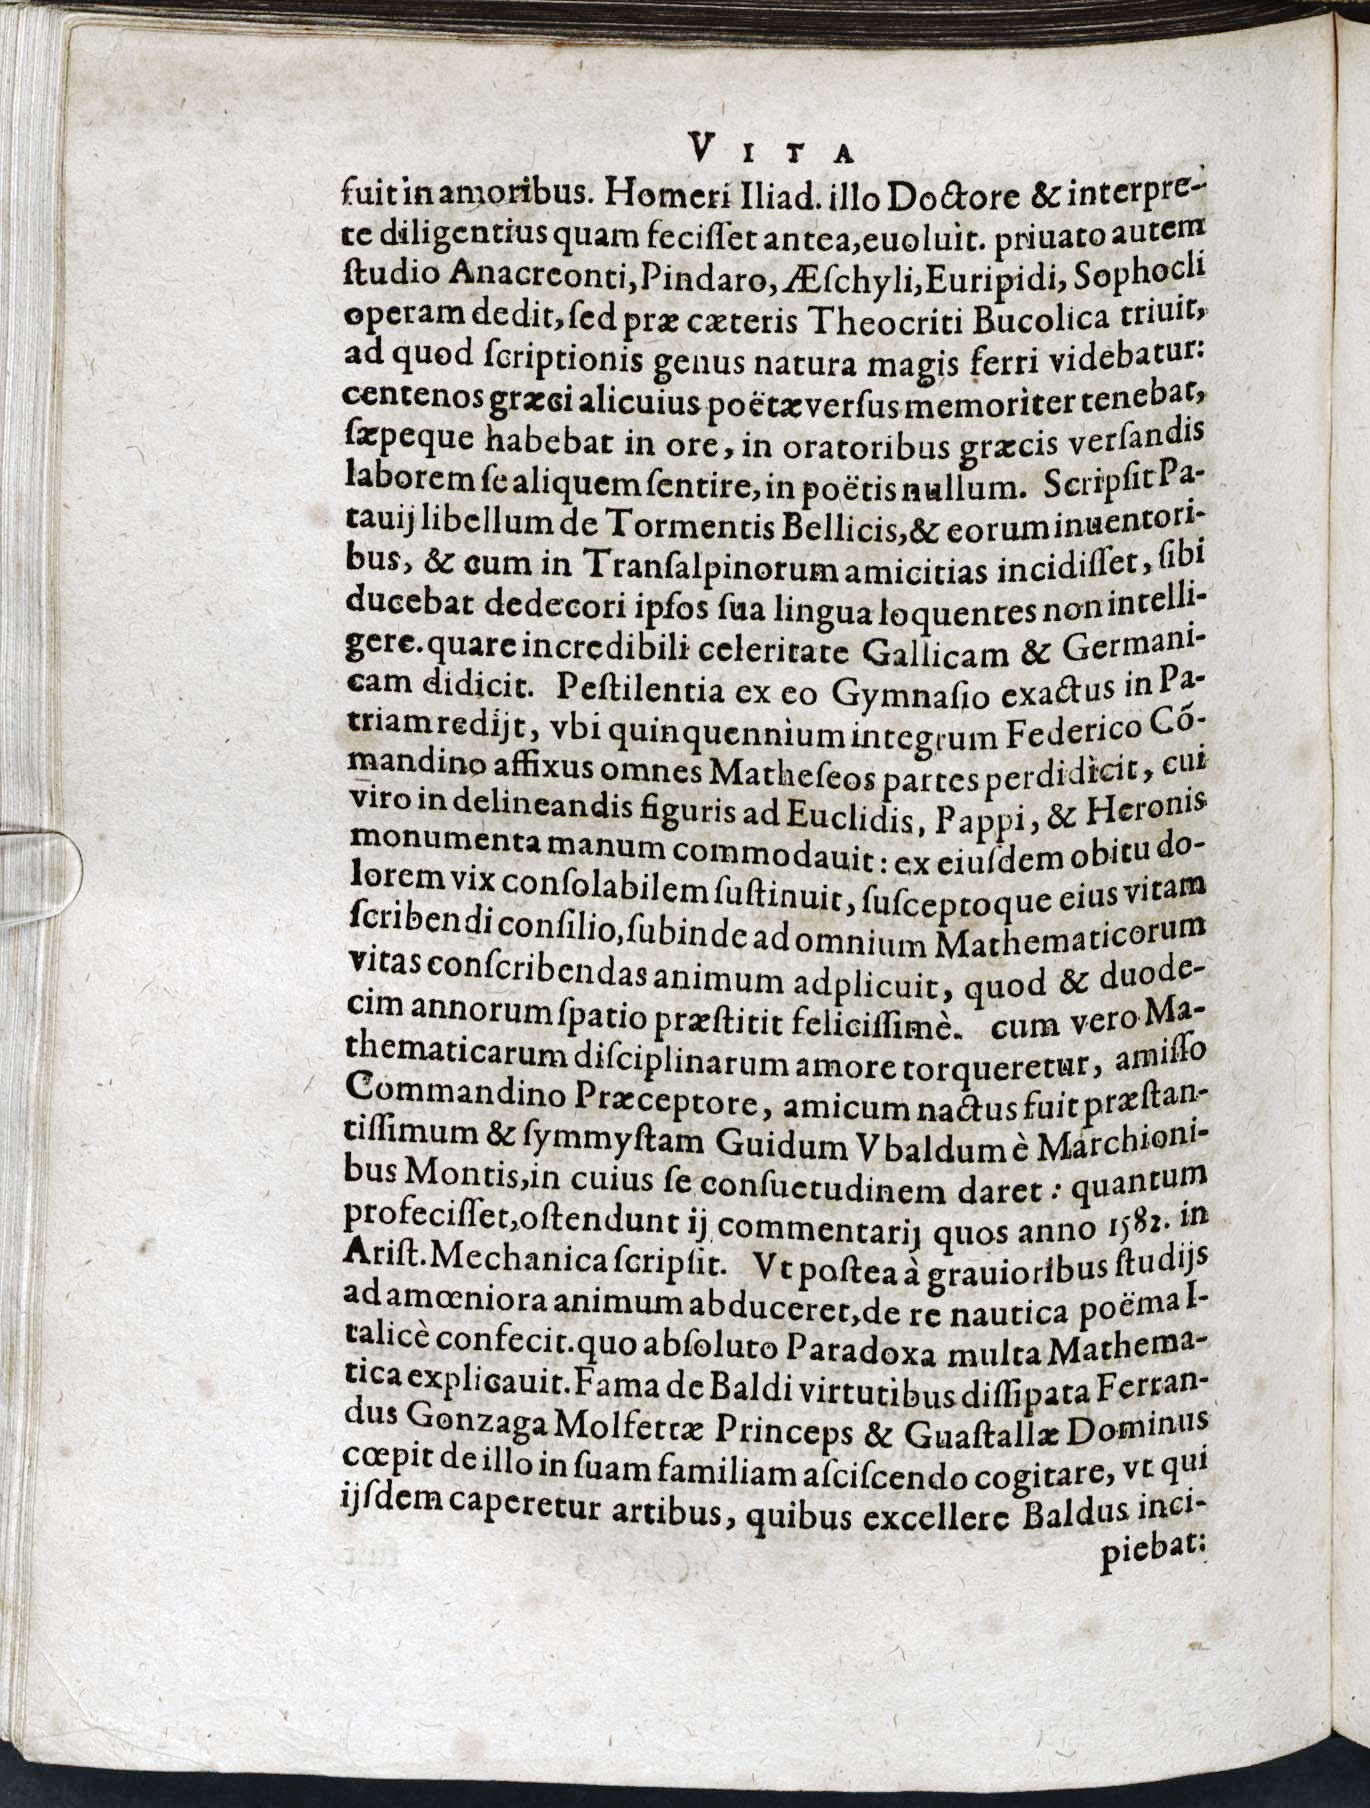 VITA
fuit in amoribus. Homeri Iliad. illo Doctore & interpre-
te diligentius quam feciſſet antea, euoluit. priuato autem
ſtudio Anacreonti, Pindaro, Æſchyli, Euripidi, Sophocli
operam dedit, ſed præ cæteris Theocriti Bucolica triuit,
ad quod ſcriptionis genus natura magis ferri videbatur:
centenos græci alicuius poëtæ verſus memoriter tenebat,
ſæpeque habebat in ore, in oratoribus græcis verſandis
laborem ſe aliquem ſentire, in poëtis nullum. Scripſit Pa-
tauij libellum de Tormentis Bellicis, & eorum inuentori-
bus, & cum in Tranſalpinorum amicitias incidiſſet, ſibi
ducebat dedecori ipſos ſua lingua loquentes non intelli-
gere. quare incredibili celeritate Gallicam & Germani-
cam didicit. Peſtilentia ex eo Gymnaſio exactus in Pa-
triam redijt, vbi quinquennium integrum Federico Cõ-
mandino affixus omnes Matheſeos partes perdidicit, cui
viro in delineandis figuris ad Euclidis, Pappi, & Heronis
monumenta manum commodauit: ex eiuſdem obitu do-
lorem vix conſolabilem ſuſtinuit, ſuſceptoque eius vitam
ſcribendi conſilio, ſubinde ad omnium Mathematicorum
vitas conſcribendas animum adplicuit, quod & duode-
cim annorum ſpatio præſtitit feliciſſimè. cum vero Ma-
thematicarum diſciplinarum amore torqueretur, amiſſo
Commandino Præceptore, amicum nactus fuit præſtan-
tiſſimum & ſymmyſtam Guidum Vbaldum è Marchioni-
bus Montis, in cuius ſe conſuetudinem daret: quantum
profeciſſet, oſtendunt ij commentarij quos anno 1582. in
Ariſt. Mechanica ſcripſit. Vt poſtea à grauioribus ſtudijs
ad amœniora animum abduceret, de re nautica poëma I-
talicè confecit. quo abſoluto Paradoxa multa Mathema-
tica explicauit. Fama de Baldi virtutibus diſſipata Ferran-
dus Gonzaga Molfettæ Princeps & Guaſtallæ Dominus
cœpit de illo in ſuam familiam aſciſcendo cogitare, vt qui
ijſdem caperetur artibus, quibus excellere Baldus inci-
piebat: